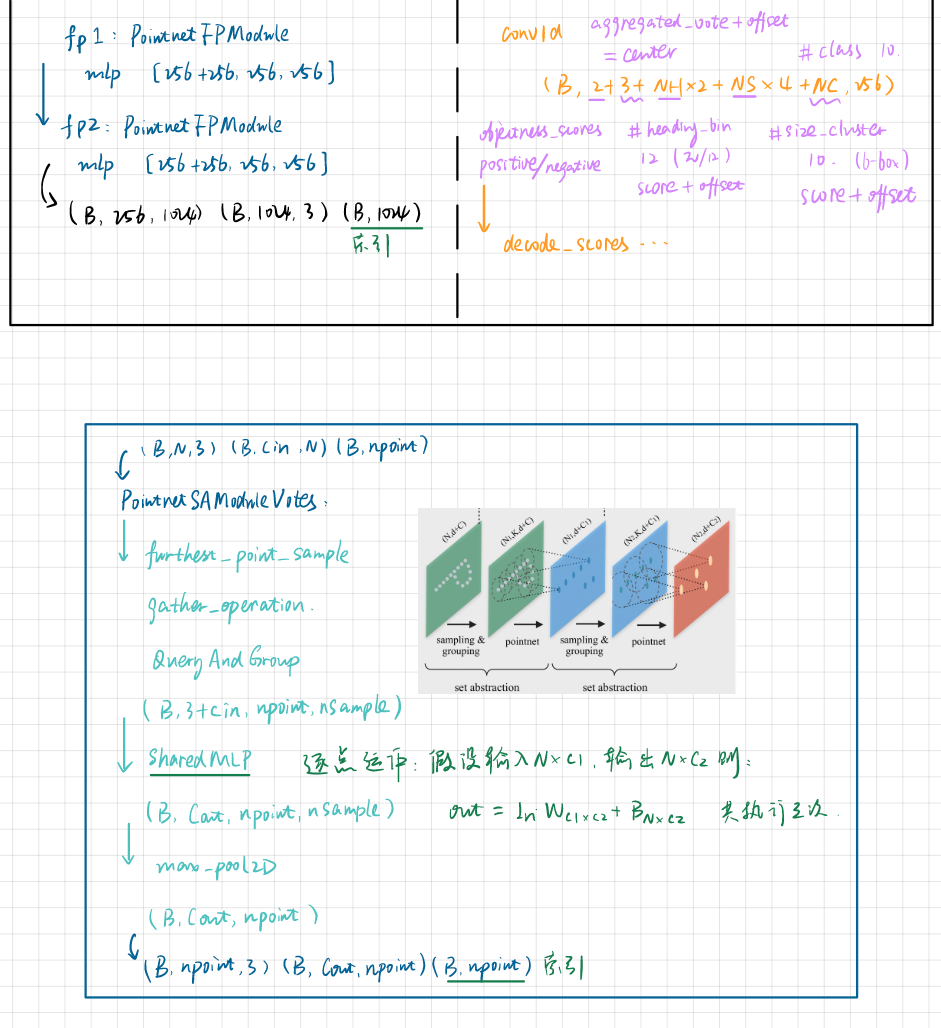 fp1 : Pointnet FPModule
mlp [256+256, 256, 256]
fp2 : Pointnet FPModule
mlp [256+256, 256, 256]
(B, 256, 1024) (B, 1024, 3) (B, 1024)
索引
conv1d aggregated_vote + offset
= center # class 10.
(B, 2+3+NH×2+NS×4+NC, 256)
objectness_scores #heading_bin #size_cluster
positive/negative 12 (2π/12) 10. (b-box)
score + offset score + offset
decode_scores ...
(B, N, 3) (B, Cin, N) (B, npoint)
Pointnet SAModuleVotes.
furthest_point_sample
gather_operation.
Query And Group
(B, 3+cin, npoint, nsample)
SharedMLP 逐点运算: 假设输入N×C1, 输出N×C2 则:
(B, Cout, npoint, nsample) out = In W C1×C2 + B N×C2 共执行三次.
max_pool2D
(B, Cout, npoint)
(B, npoint, 3) (B, Cout, npoint) (B, npoint) 索引
(N,d+C) (N1,K,d+C) (N1,d+C1) (N2,K,d+C1) (N2,d+C2)
sampling & grouping pointnet sampling & grouping pointnet
set abstraction set abstraction